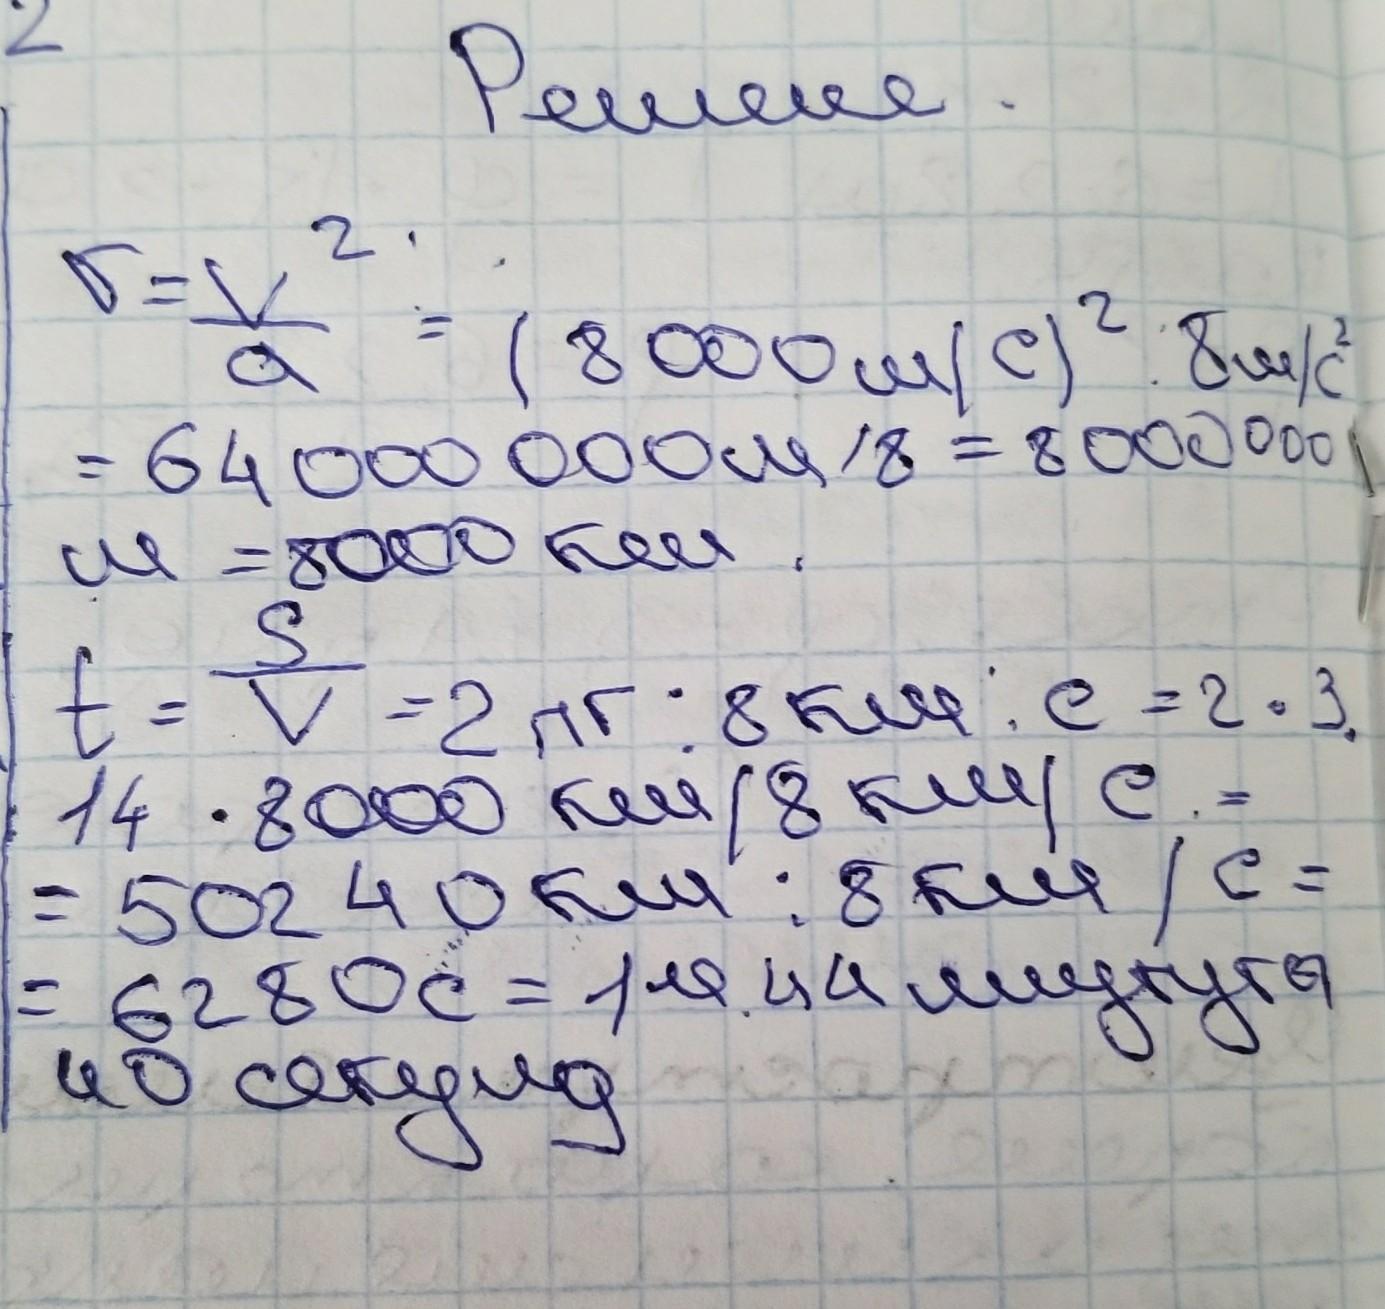 2
Решение.
r = V² / a = (8000 м/с)² : 8 м/с²
= 64 000 000 м / 8 = 8000000
м = 8000 км.
t = S / V = 2 πr : 8 км : с = 2 · 3.
14 · 8000 км / 8 км / с =
= 50240 км : 8 км / с =
= 6280 с = 1 ч 44 минуты
40 секунд